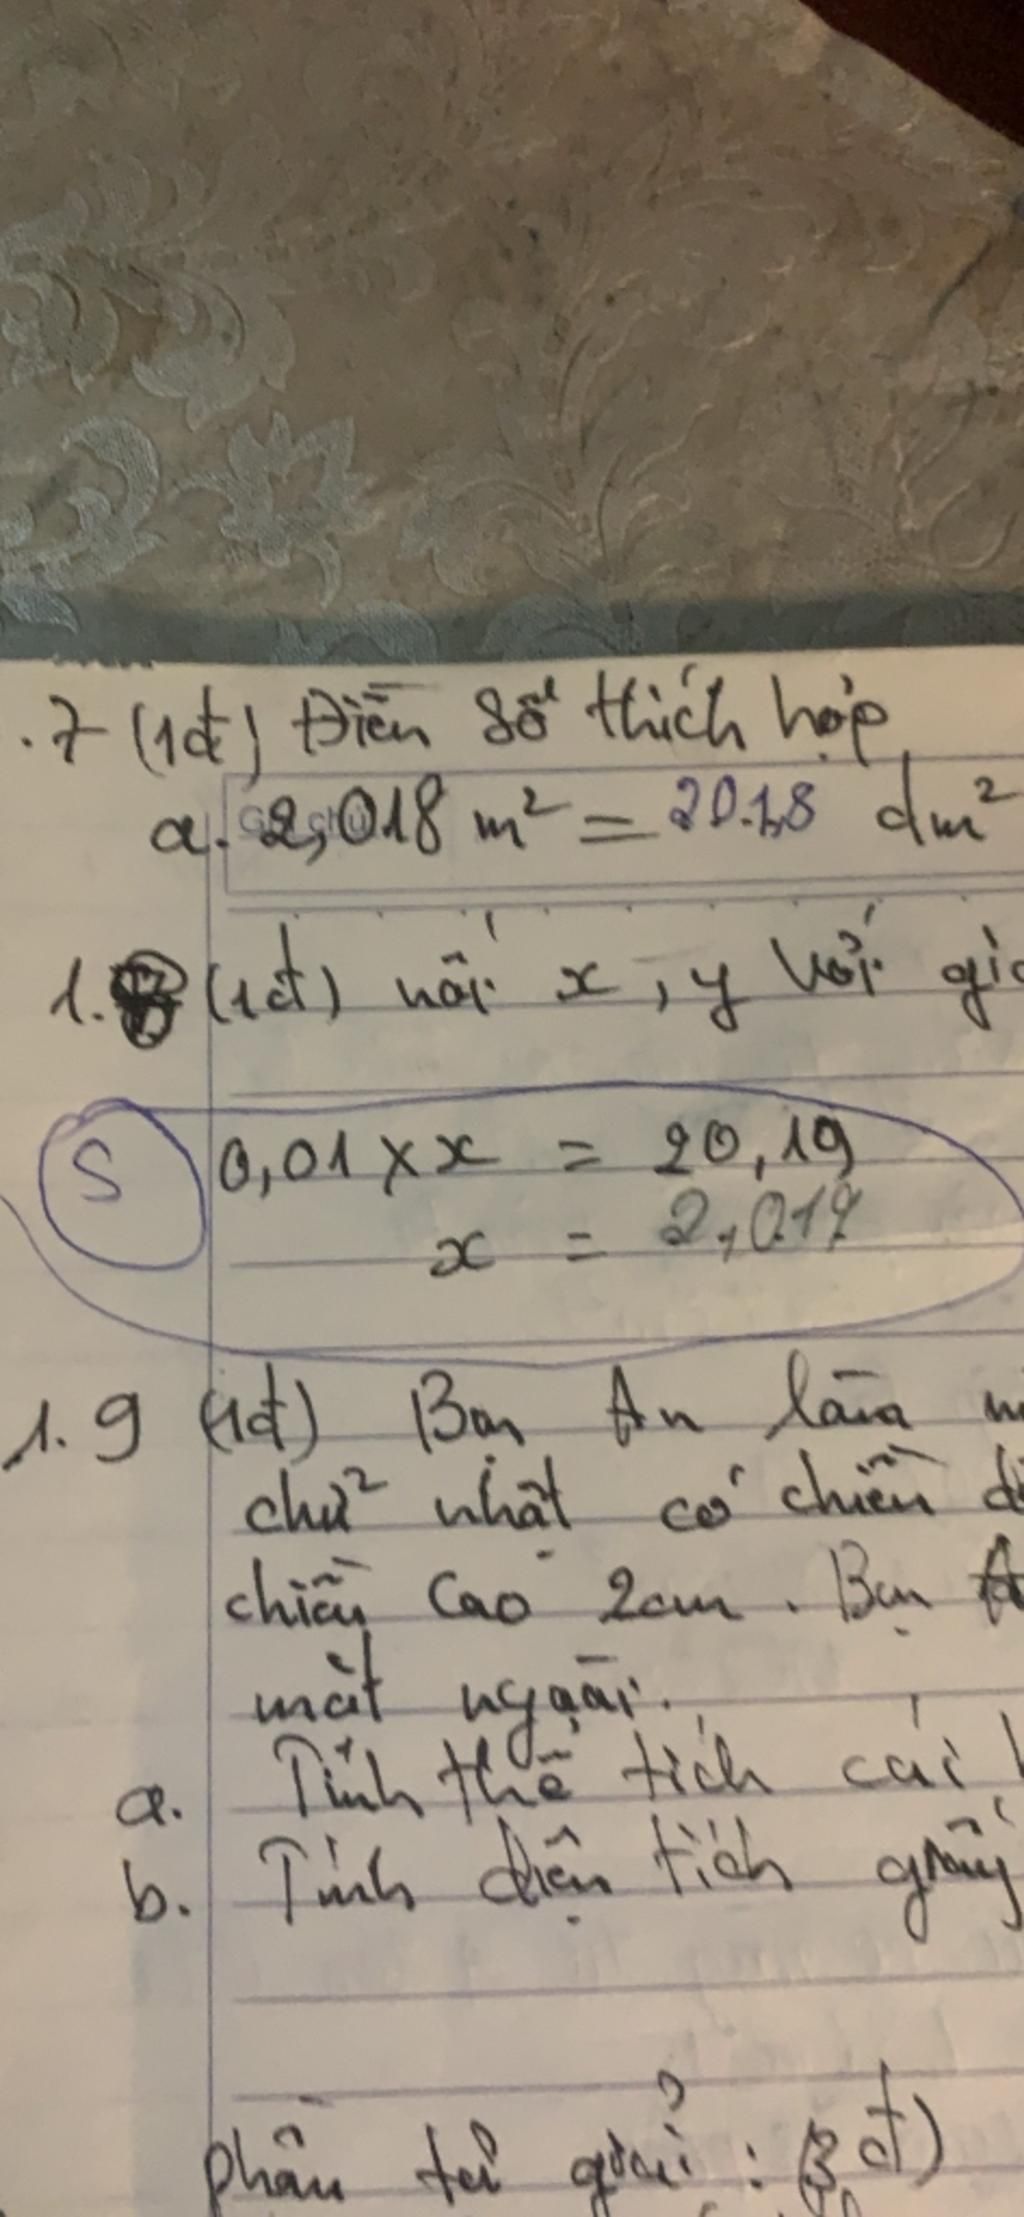 .7 (1đ) Điền số thích hợp
a. 2,018 m² = 20.1,8 dm²
1. (1đ) nối x, y với
S 0,01 x x = 20,19
x = 2,019
1.9 (1đ) Bạn An làm
chữ nhật có chiều
chiều cao 2cm. Bạn
mặt ngoài.
a. Tính thể tích cái
b. Tính diện tích giấy
phần tự giải : (3đ)